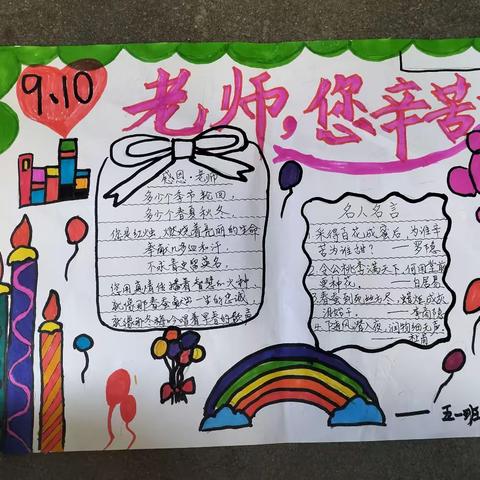 9.10
老师,您辛苦
感恩·老师
多少个季节轮回,
多少个春夏秋冬,
您是红烛 燃烧着亮丽的生命
奉献几多血和汗,
不求青史留英名,
您用真情传播着智慧的火种,
就像那春蚕献出一生的忠诚,
就像那冬梅吟唱着早春的歌声
名人名言
采得百花成蜜后,为谁辛
苦为谁甜? ——罗隐
2.令公桃李满天下,何用堂前
更种花。 ——白居易
3.春蚕到死丝方尽,蜡炬成灰
泪始干。 ——李商隐
4.随风潜入夜,润物细无声。
——杜甫
——五一班